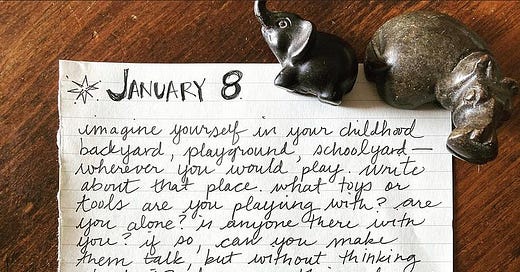 January 8
imagine yourself in your childhood
backyard, playground, schoolyard—
wherever you would play. write
about that place. what toys or
tools are you playing with? are
you alone? is anyone there with
you? if so, can you make
them talk, but without thinking